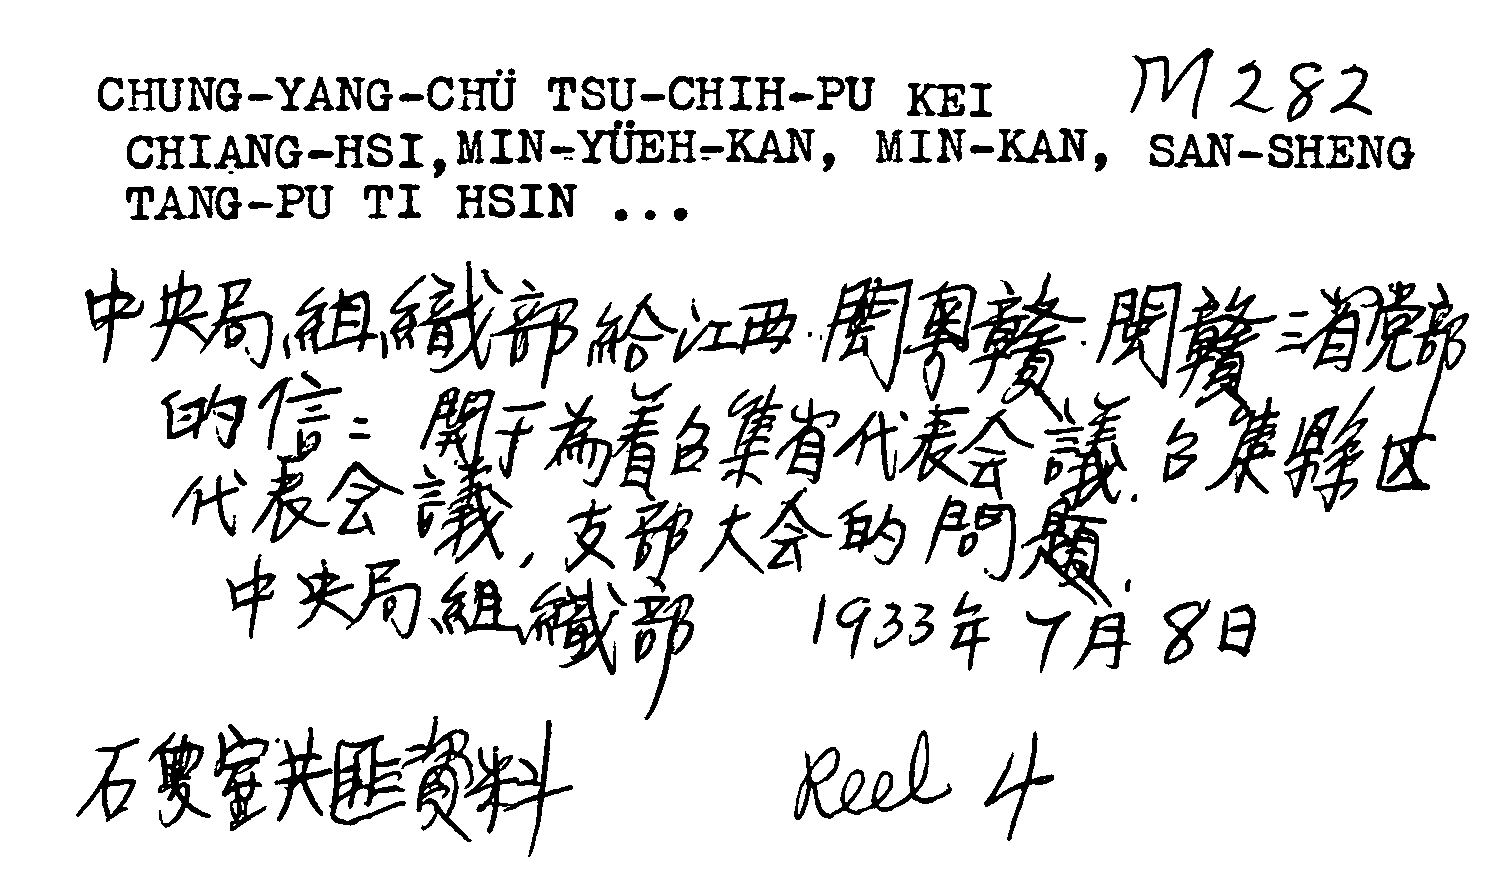 CHUNG-YANG-CHÜ TSU-CHIH-PU KEI M282
CHIANG-HSI, MIN-YÜEH-KAN, MIN-KAN, SAN-SHENG
TANG-PU TI HSIN ...
中央局組織部給江西.閩粵贛.閩贛三省党部
的信: 関于為着召集省代表会議.召集縣区
代表会議,支部大会的問題.
中央局組織部 1933年7月8日
石叟室共匪資料 Reel 4